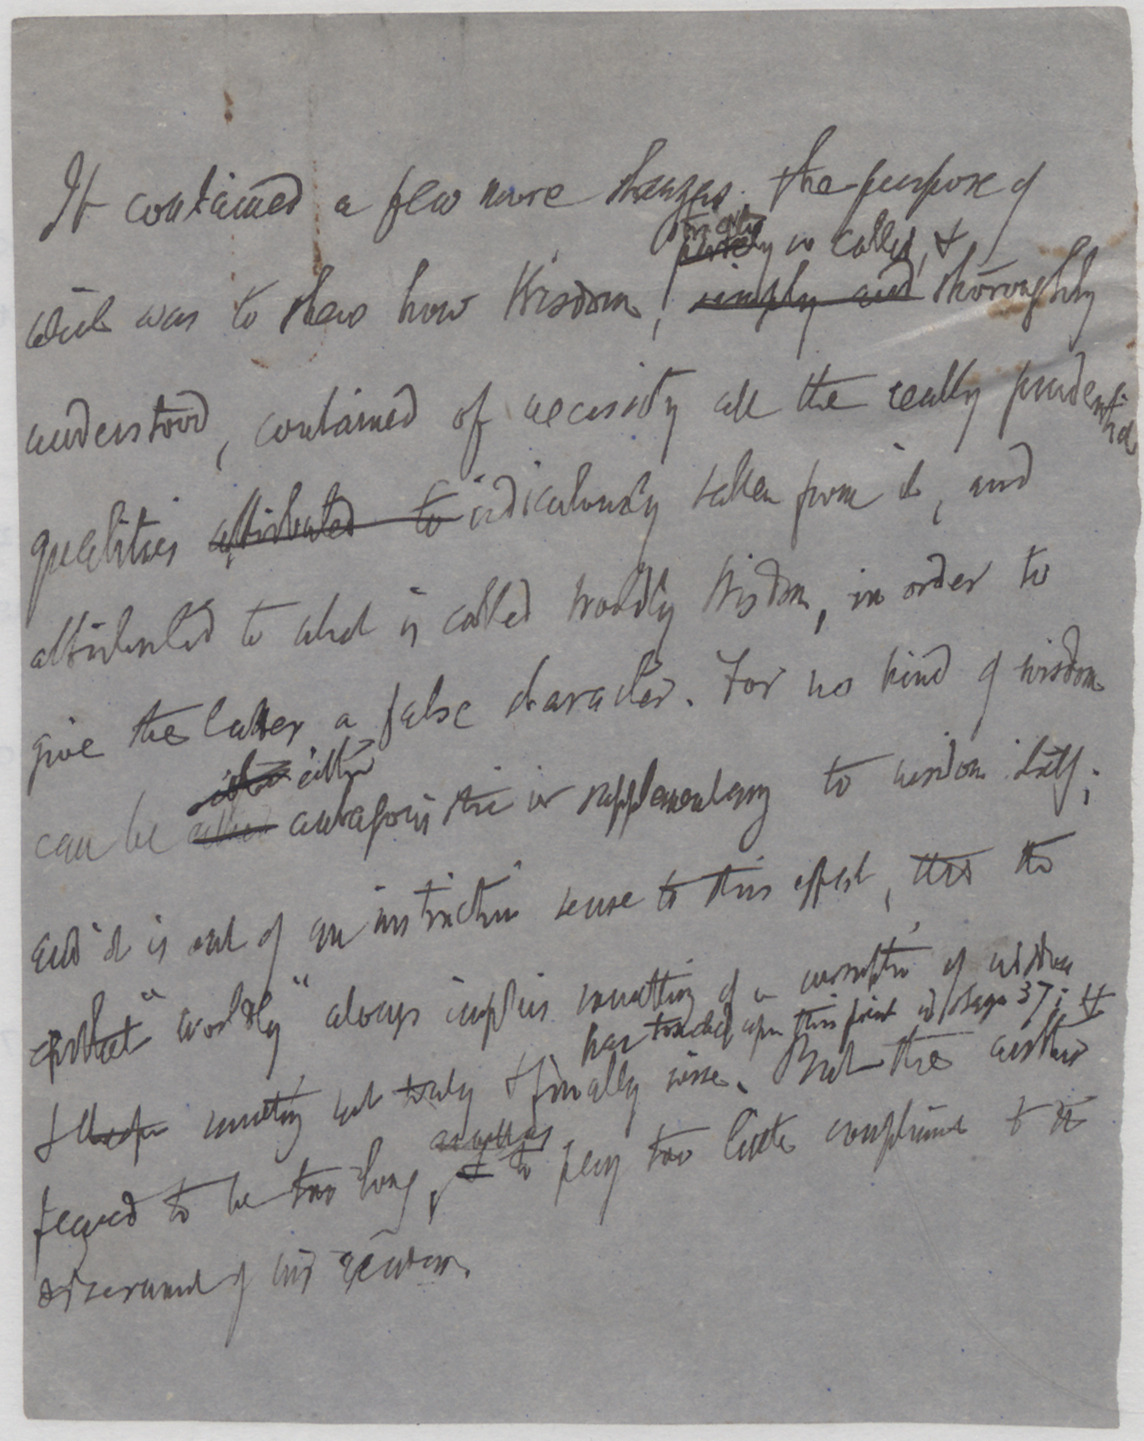 It contained a few more stanzas, the purpose of
properly so called, &
which was to shew how Wisdom, simply and thoroughly
understood, contained of necessity all the really prudential
qualities attributed to ridiculously taken from it, and
attributed to what is called Worldly Wisdom, in order to
give the latter a false character. For no kind of wisdom
either
can be antagonistic or supplementary to wisdom itself;
and it is out of an instinctive sense to this effect, that the
epithet "worldly" always implies something of a corruption of wisdom
has touched upon this point in Stanza 37; &
& something not truly & finally wise. But the author
as well as
feared to be too long, & to pay too little compliment to the
discernment of his readers.